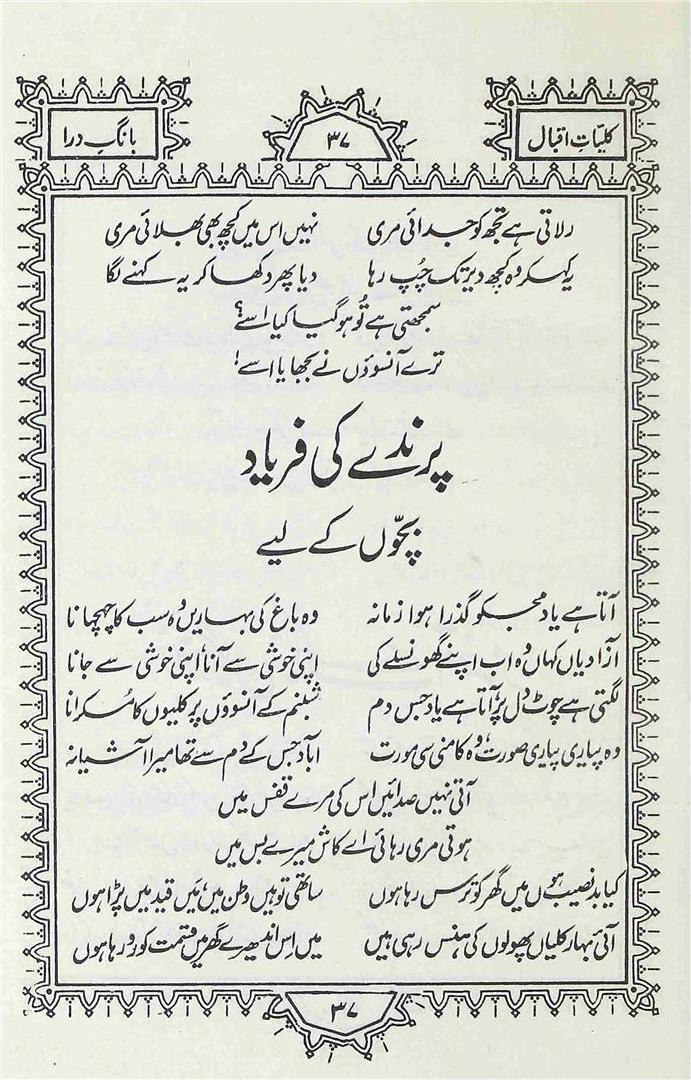 کلیاتِ اقبال ۳۷ بانگِ درا
رلاتی ہے تجھ کو جدائی مری نہیں اس میں کچھ بھی بھلائی مری
یہ کہہ کر وہ کچھ دیر تک چُپ رہا دیا پھر دکھا کر یہ کہنے لگا
سمجھتی ہے تُو ہو گیا کیا اسے؟
ترے آنسوؤں نے بجھایا اسے!
پرندے کی فریاد
بچّوں کے لیے
آتا ہے یاد مجکو گذرا ہوا زمانہ وہ باغ کی بہاریں وہ سب کا چہچہانا
آزادیاں کہاں وہ اب اپنے گھونسلے کی اپنی خوشی سے آنا، اپنی خوشی سے جانا
لگتی ہے چوٹ دل پر، آتا ہے یاد جس دم شبنم کے آنسوؤں پر کلیوں کا مُسکرانا
وہ پیاری پیاری صورت، وہ کامنی سی مورت آباد جس کے دم سے تھا میرا آشیانہ
آتی نہیں صدائیں اس کی مرے قفس میں
ہوتی مری رہائی اے کاش میرے بس میں
کیا بدنصیب ہوں میں گھر کو ترس رہا ہوں ساتھی تو ہیں وطن میں، مَیں قید میں پڑا ہوں
آئی بہار کلیاں پھولوں کی ہنس رہی ہیں میں اِس اندھیرے گھر میں قسمت کو رو رہا ہوں
۳۷